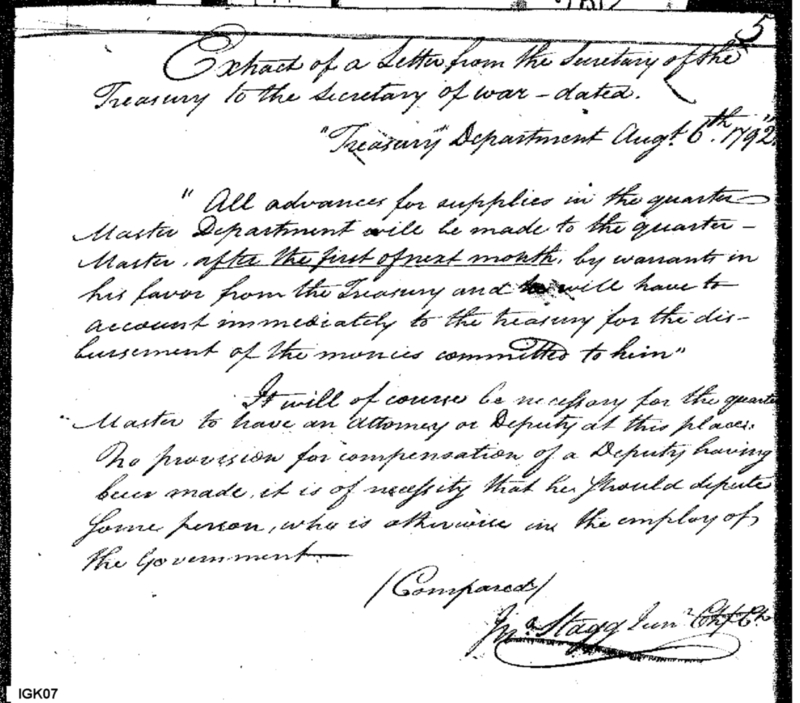 5
Extract of a Letter from the Secretary of the
Treasury to the Secretary of war – dated.
"Treasury" Department Augt. 6th. 1792"
" All advances for supplies in the quarter
Master Department will be made to the quarter –
Master, after the first of next month, by warrants in
his favor from the Treasury and will have to
account immediately to the treasury for the dis-
bursement of the monies committed to him"
It will of course be necessary for the quarter
Master to have an Attorney or Deputy at this place.
No provision for compensation of a Deputy having
been made, it is of necessity that he should depute
some person, who is otherwise in the employ of
the Government.
(Compared)
Jno. Stagg Junr. Chf Ck
IGK07